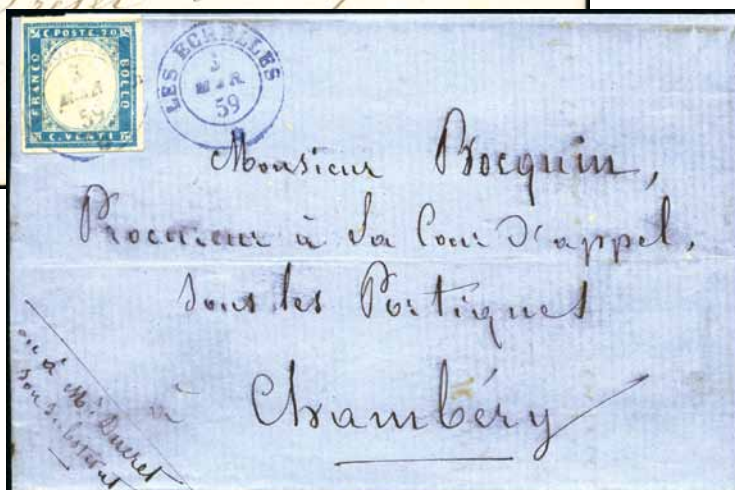 C. POSTE 20
FRANCO
BOLLO
C. VENTI
3
MAR
59
LES ECHELLES
3
MAR
59
Monsieur Bocquin,
Procureur à la Cour d'appel,
sous les Portiques
à Chambéry
ou à Mr Ducret
son substitut